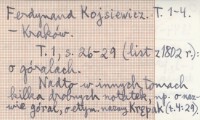 Ferdynand Kojsiewicz. T. 1-4.
– Kraków.
T. 1, s. 26-29 (list z 1802 r.):
o góralach.
Nadto w innych tomach
kilka drobnych notatek, np. o naz-
wie góral, o etym. nazwy Krępak (t. 4: 29).